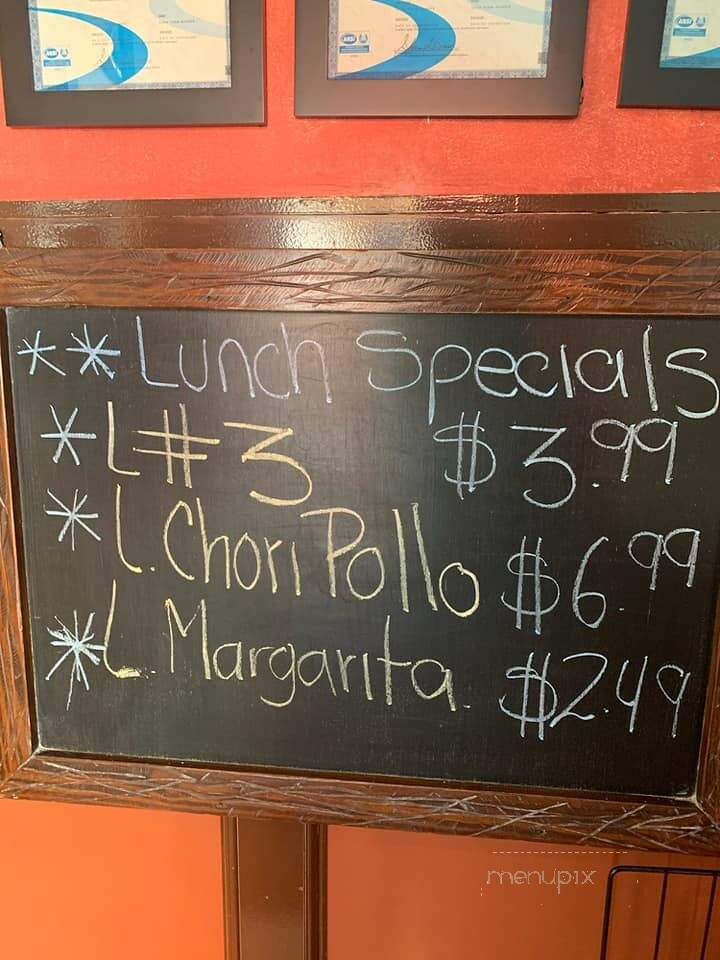 ANSI
ANSI
ANSI
** Lunch Specials
* L#3 $3.99
* L.Chori Pollo $6.99
* L.Margarita. $2.49
menupix